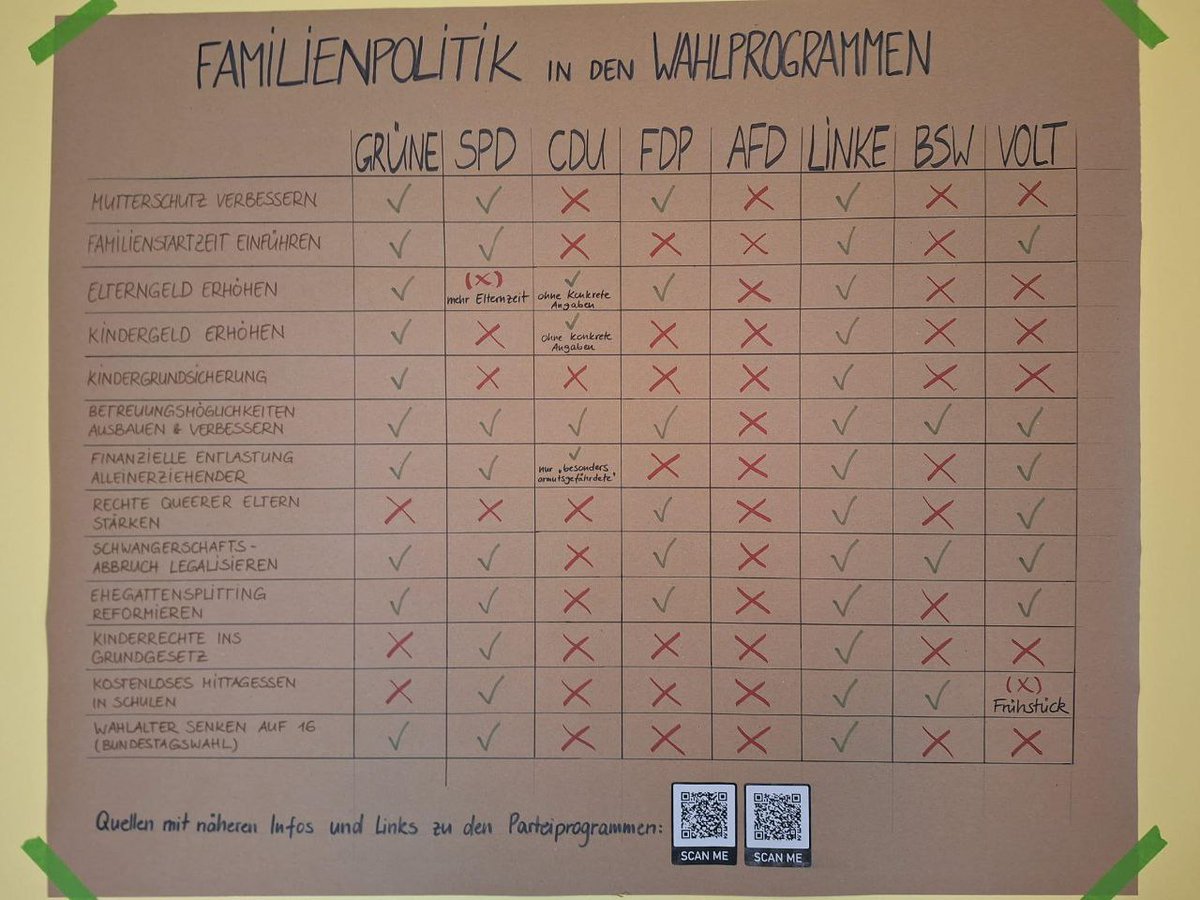 FAMILIENPOLITIK IN DEN WAHLPROGRAMMEN
GRÜNE SPD CDU FDP AFD LINKE BSW VOLT
MUTTERSCHUTZ VERBESSERN ✓ ✓ X ✓ X ✓ X X
FAMILIENSTARTZEIT EINFÜHREN ✓ ✓ X X X ✓ X ✓
ELTERNGELD ERHÖHEN ✓ (X) ✓ ✓ X ✓ X X
mehr Elternzeit ohne Konkrete
Angaben
KINDERGELD ERHÖHEN ✓ X ✓ X X ✓ X X
ohne konkrete
Angaben
KINDERGRUNDSICHERUNG ✓ X X X X ✓ X X
BETREUUNGSMÖGLICHKEITEN
AUSBAUEN & VERBESSERN ✓ ✓ ✓ ✓ X ✓ ✓ ✓
FINANZIELLE ENTLASTUNG
ALLEINERZIEHENDER ✓ ✓ ✓ X X ✓ X ✓
nur „besonders
armutsgefährdete"
RECHTE QUEERER ELTERN
STÄRKEN X X X ✓ X ✓ X ✓
SCHWANGERSCHAFTS-
ABBRUCH LEGALISIEREN ✓ ✓ X ✓ X ✓ ✓ ✓
EHEGATTENSPLITTING
REFORMIEREN ✓ ✓ X ✓ X ✓ X ✓
KINDERRECHTE INS
GRUNDGESETZ X ✓ X X X ✓ X X
KOSTENLOSES MITTAGESSEN
IN SCHULEN X ✓ X X X ✓ ✓ (X)
Frühstück
WAHLALTER SENKEN AUF 16
(BUNDESTAGSWAHL) ✓ ✓ X X X ✓ X X
Quellen mit näheren Infos und Links zu den Parteiprogrammen:
SCAN ME SCAN ME